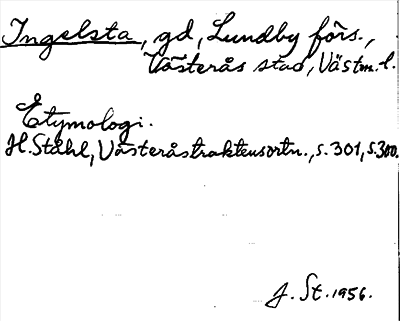 Ingelsta, gd, Lundby förs.,
Västerås stad, Västm. l.
Etymologi.
H. Ståhl, Västeråstraktensortn., s. 301, s. 300.
J. St. 1956.